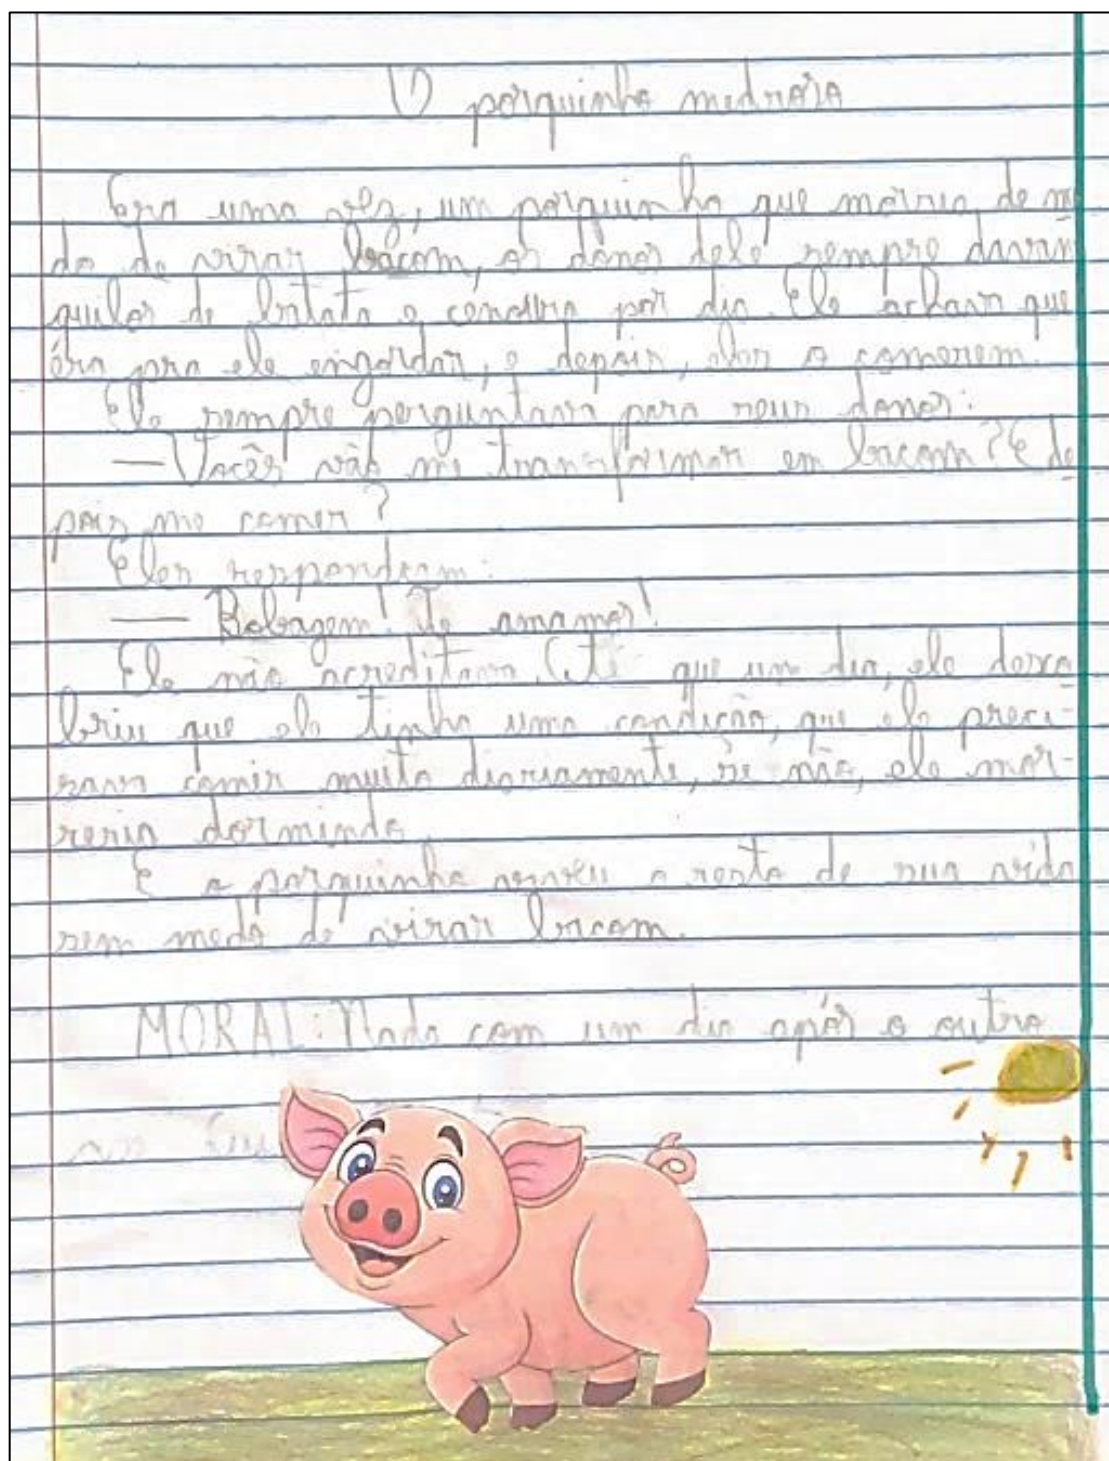 O porquinho medroso
Era uma vez, um porquinho que morria de me
do de virar bacom, os donos dele sempre davam
quilos de batata e cenoura por dia. Ele achava que
éra pra ele engordar, e depois, eles o comerem.
Ele sempre perguntava para seus donos:
— Vocês vão me transformar em bacom? E de
pois me comer?
Eles respondiam:
— Bobagem! Te amamos!
Ele não acreditava. Até que um dia, ele desco
briu que ele tinha uma condição, que ele preci-
sava comer muito diariamente, se não, ele mor-
reria dormindo.
E o porquinho viveu o resto de sua vida
sem medo de virar bacom.
MORAL: Nada com um dia após o outro